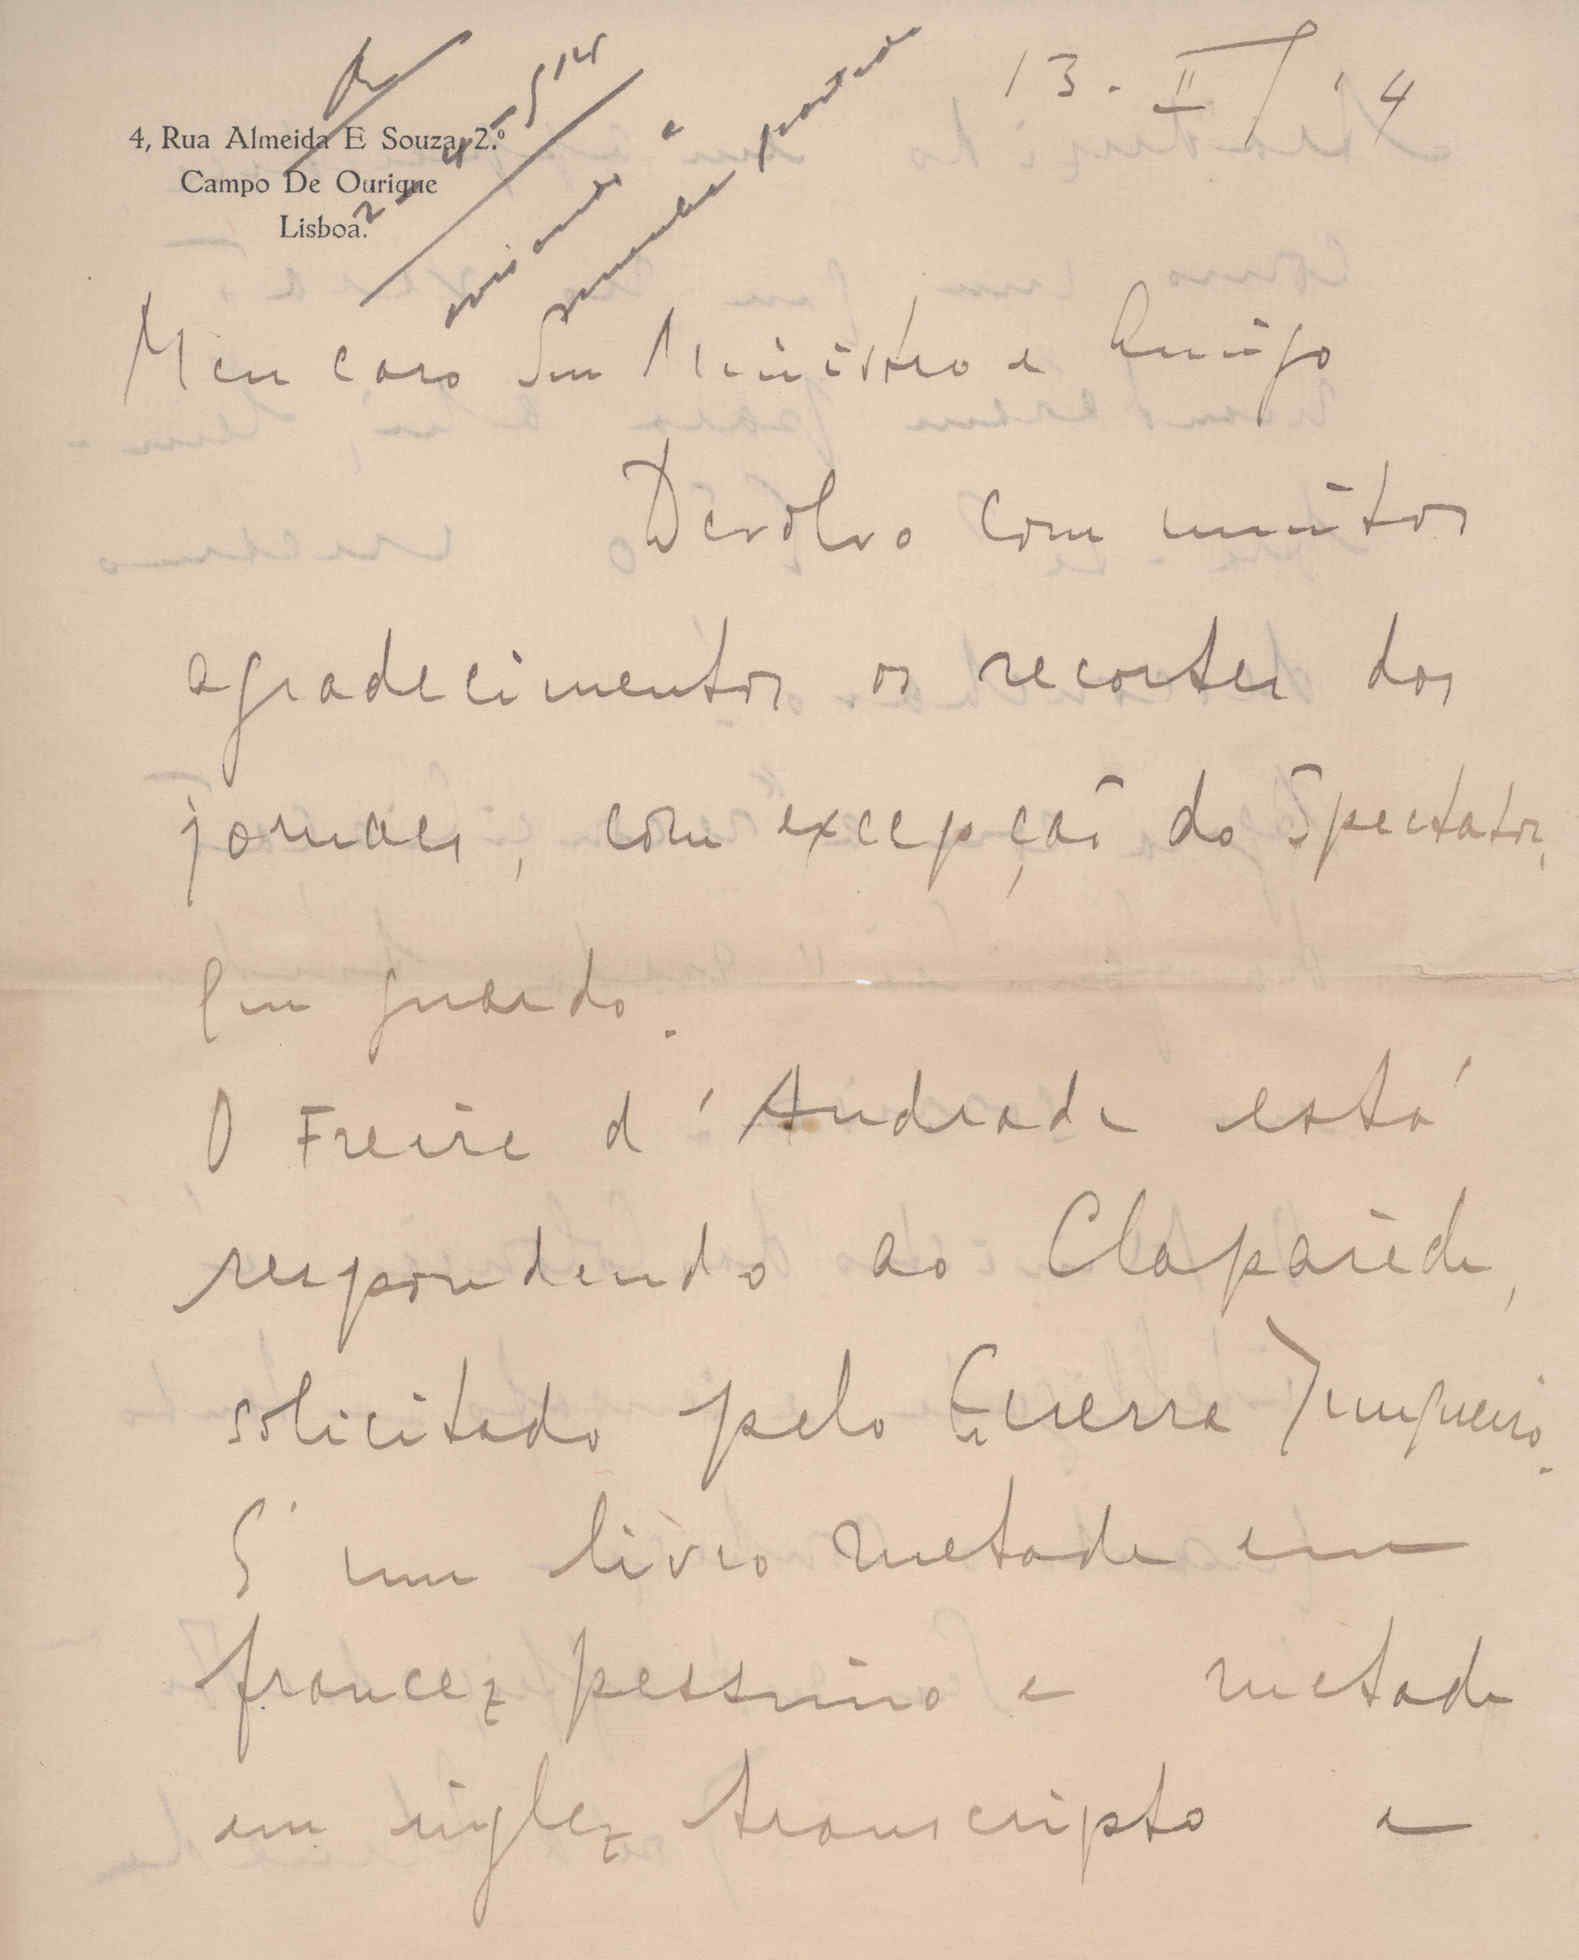 13. II / 14
4, Rua Almeida E Souza, 2.º
Campo De Ourique
Lisboa.
Meu caro Snr Ministro e Amigo
Devolvo com muitos
agradecimentos os recortes dos
jornaes, com excepção do Spectator,
que guardo.
O Freire d'Andrade está
respondendo ao Claparède,
solicitado pelo Guerra Junqueiro.
É um livro metade em
francez pessimo e metade
em inglez transcripto e